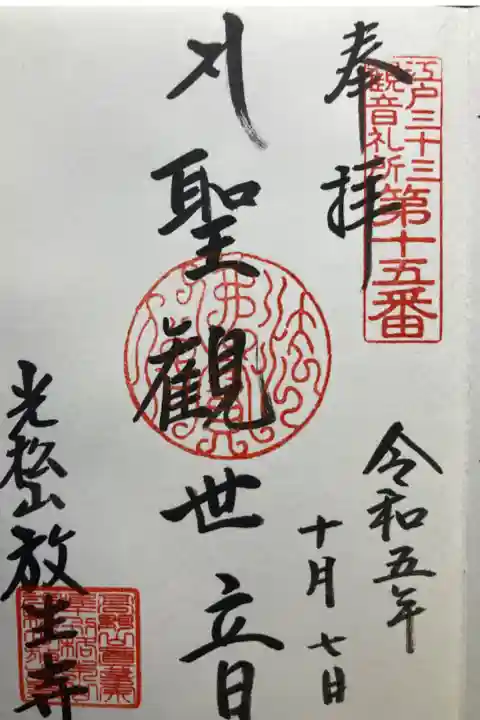 江戸三十三
観音札所
第十五番
奉拝
令和五年
十月七日
聖観世音
光松山放生寺